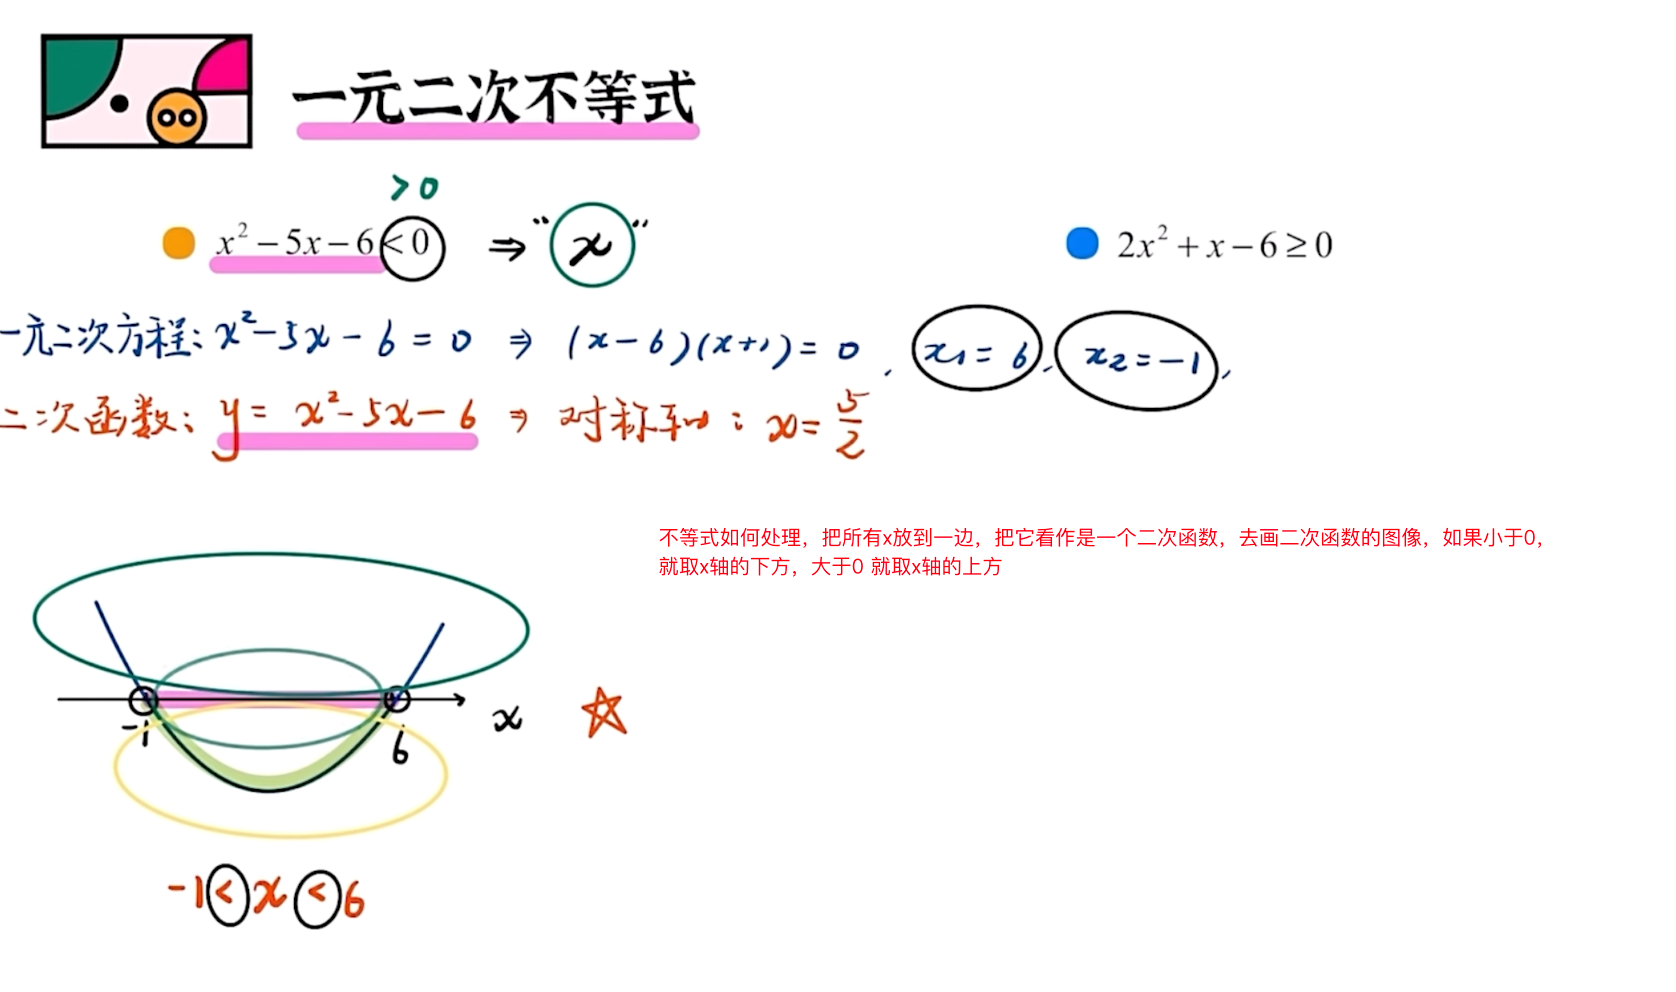 一元二次不等式
>0
x² − 5x − 6 < 0 ⇒ “x”
2x² + x − 6 ≥ 0
一元二次方程: x² − 5x − 6 = 0 ⇒ (x − 6)(x + 1) = 0, x₁ = 6, x₂ = −1,
二次函数: y = x² − 5x − 6 ⇒ 对称轴: x = 5/2
不等式如何处理，把所有x放到一边，把它看作是一个二次函数，去画二次函数的图像，如果小于0，
就取x轴的下方，大于0 就取x轴的上方
-1 6 x
-1 < x < 6